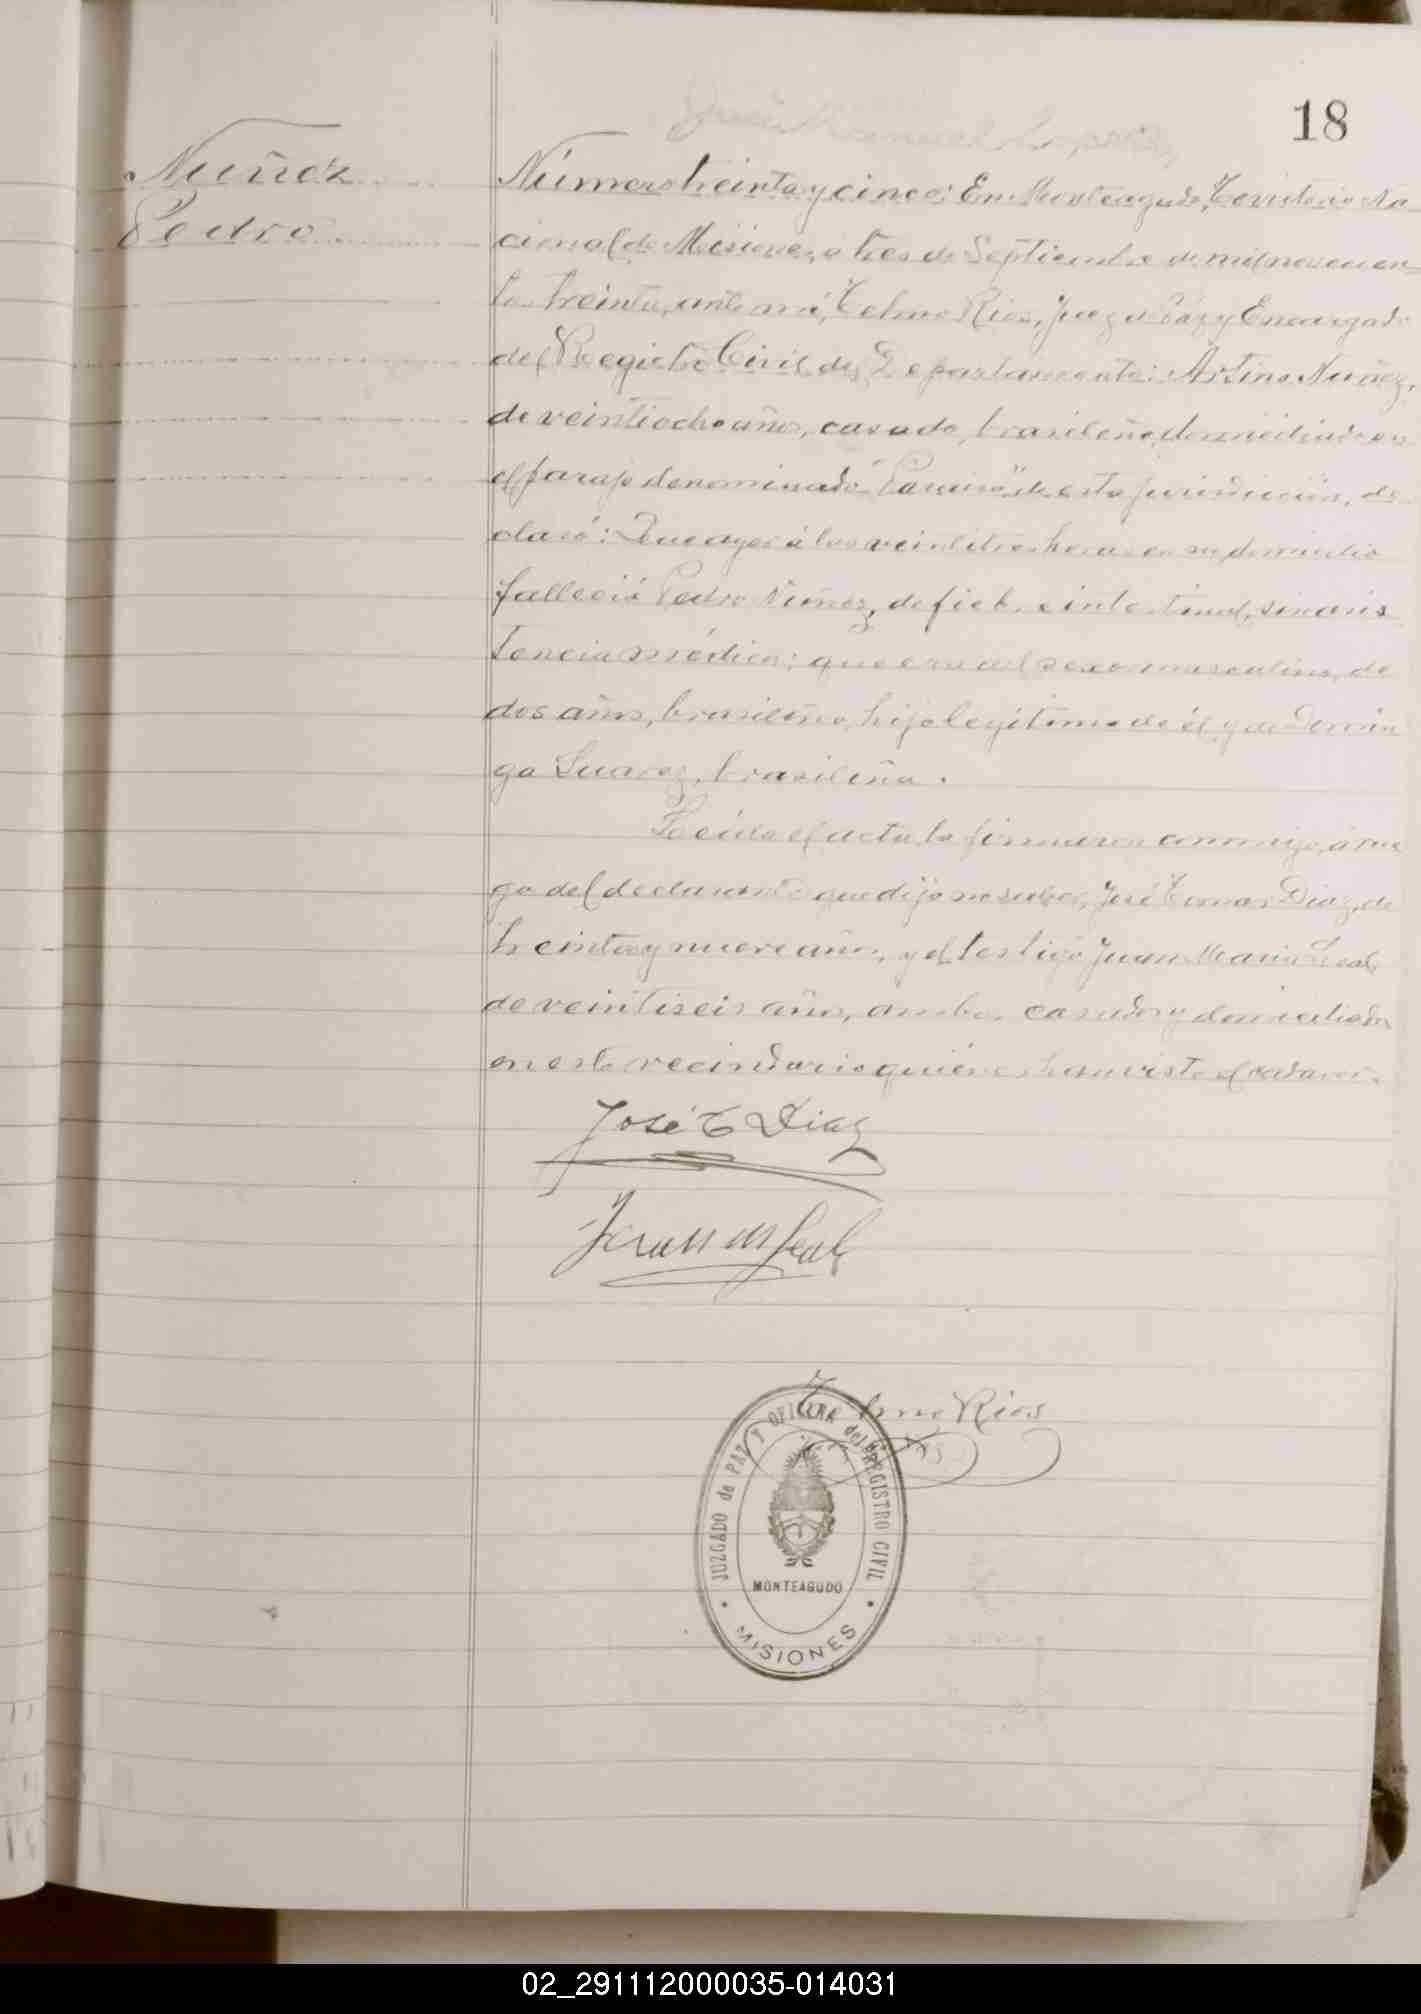 18
Nuñez
Pedro
Número treinta y cinco: En Monteagudo, Territorio Na
cional de Misiones, á tres de Septiembre de mil novecien
tos treinta, ante mí, Telmo Rios, Juez de Paz y Encargado
del Registro Civil del Departamento: Nuñez,
de veintiocho años, casado, brasileño, domiciliado en
el paraje denominado de esta jurisdicción, de
claró: Que ayer á las veintitres horas en su domicilio
falleció Pedro Nuñez, de fiebre intestinal, sin asis
tencia médica; que era del sexo masculino, de
dos años, brasileño, hijo legítimo de él y de Domin
ga Suarez, brasileña.
Leída el acta, la firmaron conmigo, á rue
go del declarante que dijo no saber, José Tomas Diaz, de
treinta y nueve años, y el testigo Juan Maria Leal,
de veintiseis años, ambos casados y domiciliados
en este vecindario quiénes han visto el cadaver.
José T Diaz
Juan M Leal
Telmo Rios
JUZGADO de PAZ Y OFICINA del REGISTRO CIVIL
MONTEAGUDO
MISIONES
02_291112000035-014031